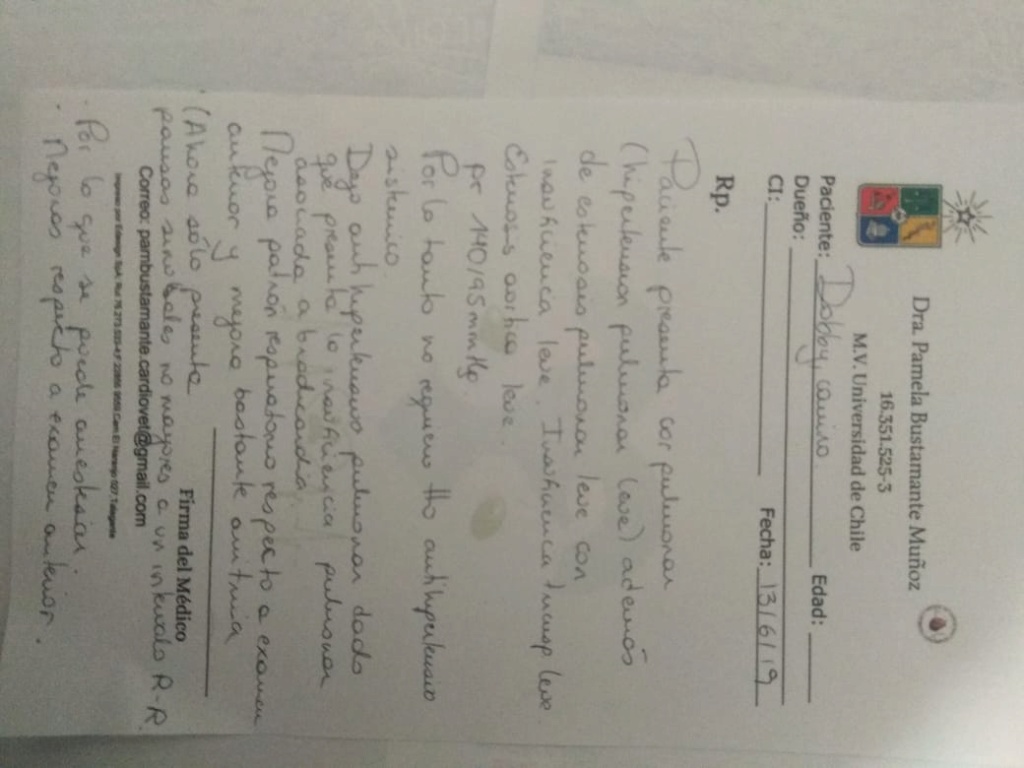 Dra. Pamela Bustamante Muñoz
16.351.525-3
M.V. Universidad de Chile
Paciente: Dobby, canino. Edad:
Dueño:
CI: Fecha: 13/6/19
Rp.
Paciente presenta cor pulmonar
(hipertension pulmonar leve) además
de estenosis pulmonar leve con
insuficiencia leve. Insuficiencia tricusp leve.
Estenosis aortica leve.
pr 140/95 mmHg
Por lo tanto no requiere tto antihipertensivo
sistemico.
Dejo antihipertensivo pulmonar dado
que presenta insuficiencia pulmonar
asociada a bradicardia.
Mejora patrón respiratorio respecto a examen
anterior y mejora bastante arritmia
(Ahora sólo presenta
pausas sinusales no mayores a un intervalo R-R
Firma del Médico
Correo: pambustamante.cardiovet@gmail.com
. Por lo que se puede anestesiar
. Mejoras respecto a examen anterior.